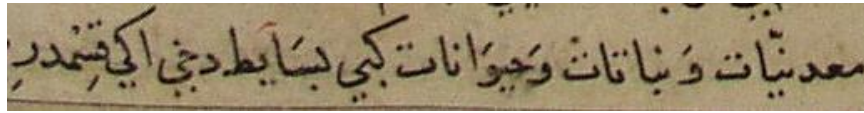 معدنيّات وَ نباتات وَحيوَانات كبي بسَايط دخي ايكي قِسْمدرِ